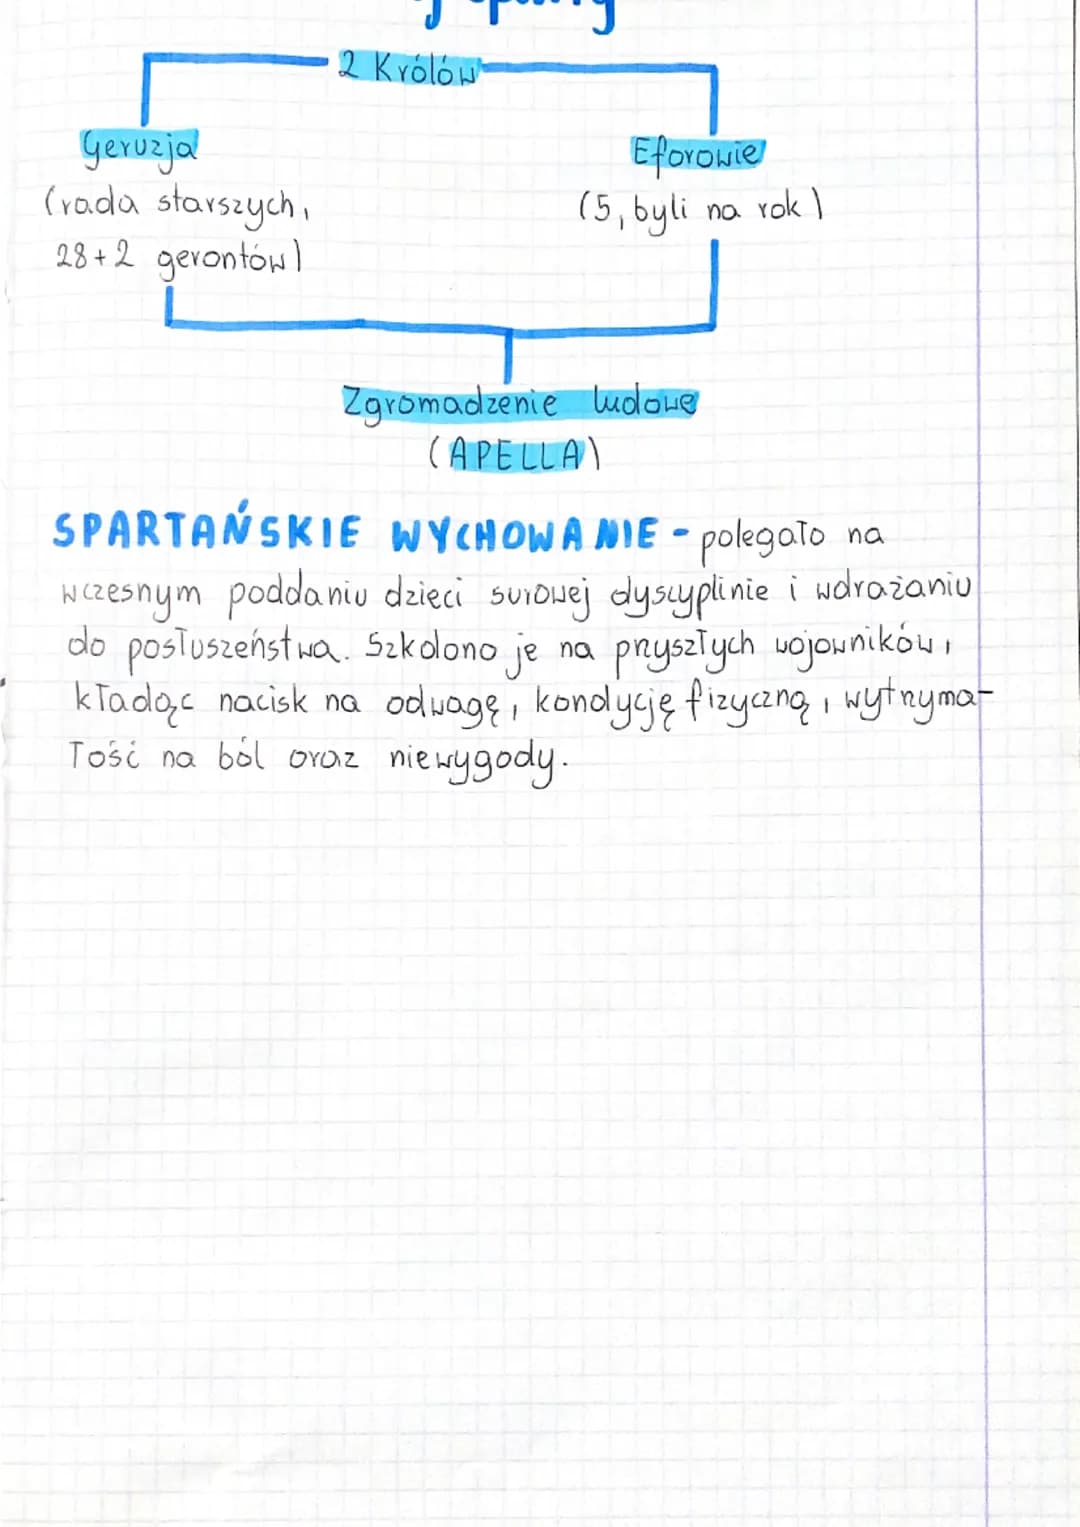 2 Królów
Geruzja
Eforowie
(rada starszych,
28+2 gerontów)
(5, byli na rok)
Zgromadzenie ludowe
(APELLA)
SPARTAŃSKIE WYCHOWANIE - polegało na
wczesnym poddaniu dzieci surowej dyscyplinie i wdrażaniu
do posłuszeństwa. Szkolono je na przyszłych wojowników,
kładąc nacisk na odwagę, kondycję fizyczną, wytrzyma-
łość na ból oraz niewygody.